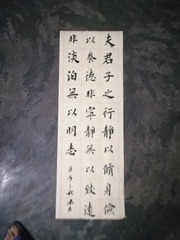 夫君子之行靜以脩身儉
以養德非寧靜無以致遠
非淡泊無以明志